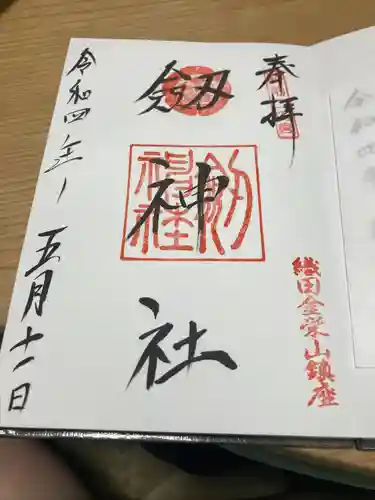 奉拝
織田金栄山鎮座
劔神社
劔神社
令和四年
五月十一日